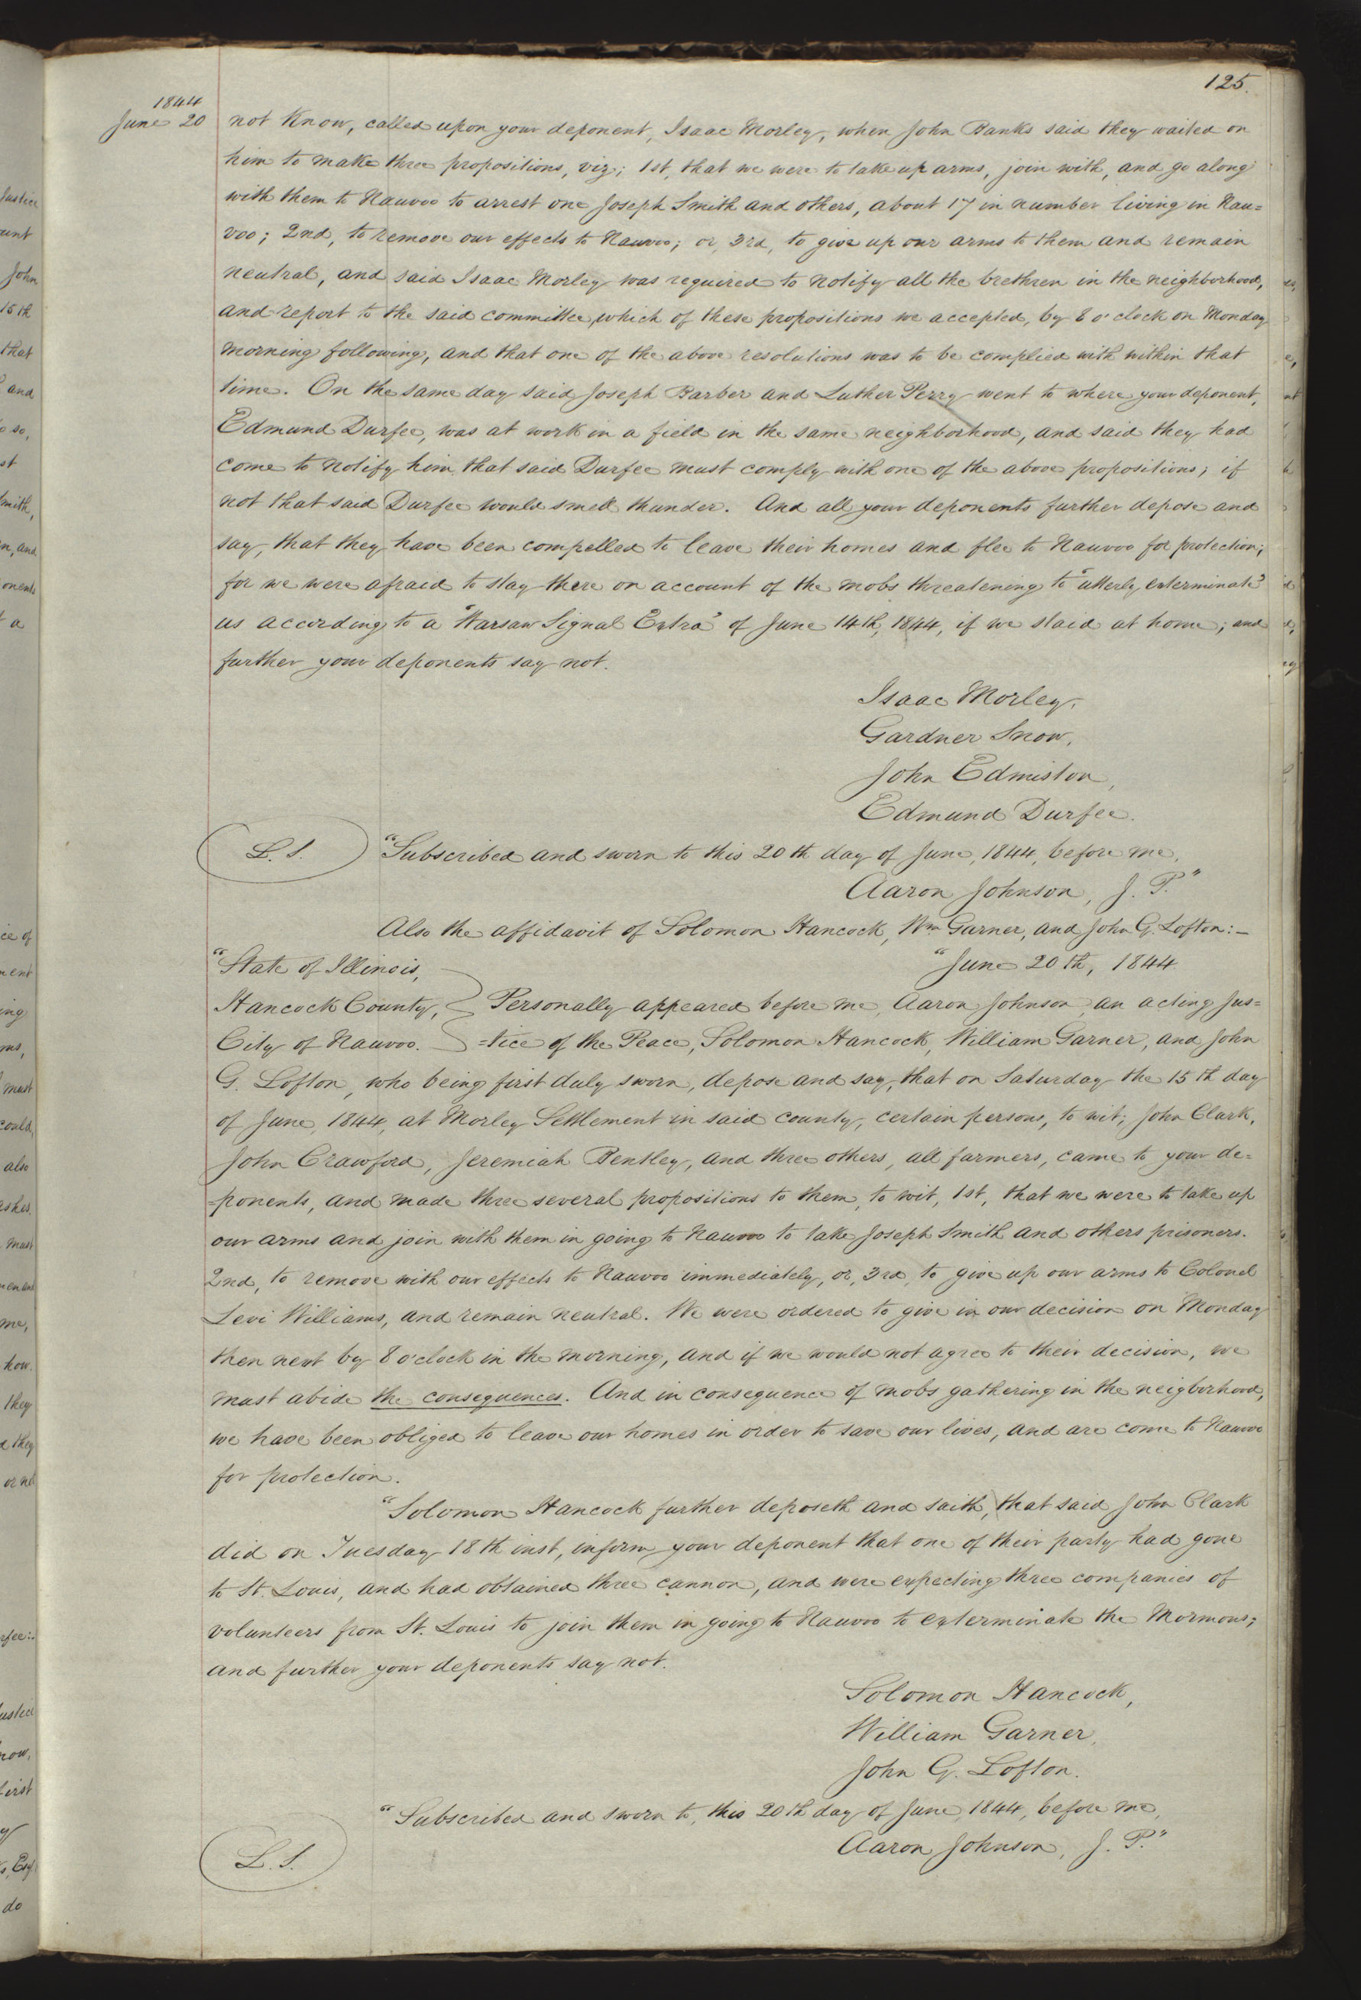 125.
1844
June 20
not know, called upon your deponent, Isaac Morley, when John Banks said they waited on
him to make three propositions, viz; 1st, that we were to take up arms, join with, and go along
with them to Nauvoo to arrest one Joseph Smith and others, about 17 in number living in Nau=
voo; 2nd, to remove our effects to Nauvoo; or, 3rd, to give up our arms to them and remain
neutral, and said Isaac Morley was required to notify all the brethren in the neighborhood,
and report to the said committee, which of these propositions we accepted, by 8 o'clock on Monday
morning following, and that one of the above resolutions was to be complied with within that
time. On the same day said Joseph Barber and Luther Perry went to where your deponent,
Edmund Durfee, was at work in a field in the same neighborhood, and said they had
come to notify him that said Durfee must comply with one of the above propositions; if
not that said Durfee would smell thunder. And all your deponents further depose and
say, that they have been compelled to leave their homes and flee to Nauvoo for protection;
for we were afraid to stay there on account of the mobs threatening to "utterly exterminate"
us according to a "Warsaw Signal Extra" of June 14th, 1844, if we staid at home; and
further your deponents say not.
Isaac Morley,
Gardner Snow,
John Edmiston,
Edmund Durfee.
L. S.
"Subscribed and sworn to this 20th day of June, 1844, before me,
Aaron Johnson, J. P."
Also the affidavit of Solomon Hancock, Wm Garner, and John G. Lofton:—
"State of Illinois,
"June 20th, 1844
Hancock County, Personally appeared before me, Aaron Johnson, an acting Jus=
City of Nauvoo. =tice of the Peace, Solomon Hancock, William Garner, and John
G. Lofton, who being first duly sworn, depose and say, that on Saturday the 15th day
of June, 1844, at Morley Settlement in said county, certain persons, to wit; John Clark,
John Crawford, Jeremiah Bentley, and three others, all farmers, came to your de=
=ponents, and made three several propositions to them, to wit, 1st, that we were to take up
our arms and join with them in going to Nauvoo to take Joseph Smith and others prisoners.
2nd, to remove with our effects to Nauvoo immediately, or, 3rd, to give up our arms to Colonel
Levi Williams, and remain neutral. We were ordered to give in our decision on Monday
then next by 8 o'clock in the morning, and if we would not agree to their decision, we
must abide the consequences. And in consequence of mobs gathering in the neigborhood,
we have been obliged to leave our homes in order to save our lives, and are come to Nauvoo
for protection.
"Solomon Hancock further deposeth and saith, that said John Clark
did on Tuesday 18th inst, inform your deponent that one of their party had gone
to St. Louis, and had obtained three cannon, and were expecting three companies of
volunteers from St. Louis to join them in going to Nauvoo to exterminate the Mormons;
and further your deponents say not.
Solomon Hancock,
William Garner,
John G. Lofton.
"Subscribed and sworn to, this 20th day of June, 1844, before me,
L. S.
Aaron Johnson, J. P."